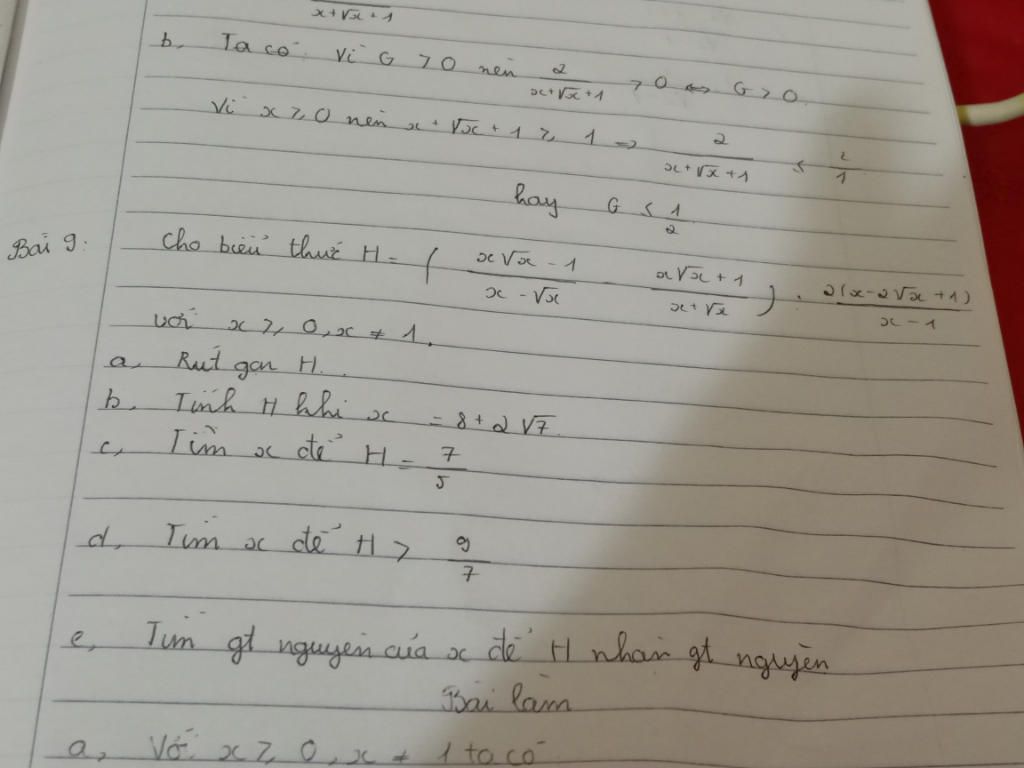 x+√x+1
b, Ta có: Vì G > 0 nên 2/(x+√x+1) > 0 ⇔ G > 0.
Vì x ≥ 0 nên x + √x + 1 ≥ 1 ⇒ 2/(x+√x+1) ≤ 2/1
hay G ≤ 1/2
Bài 9: Cho biểu thức H = ( (x√x - 1)/(x - √x) - (x√x + 1)/(x + √x) ) : 2(x-2√x+1)/(x-1)
với x ≥ 0, x ≠ 1.
a, Rút gọn H.
b, Tính H khi x = 8 + 2√7.
c, Tìm x để H = 7/5
d, Tìm x để H > 9/7
e, Tìm gt nguyên của x để H nhận gt nguyên
Bài làm
a, Với x ≥ 0, x ≠ 1 ta có